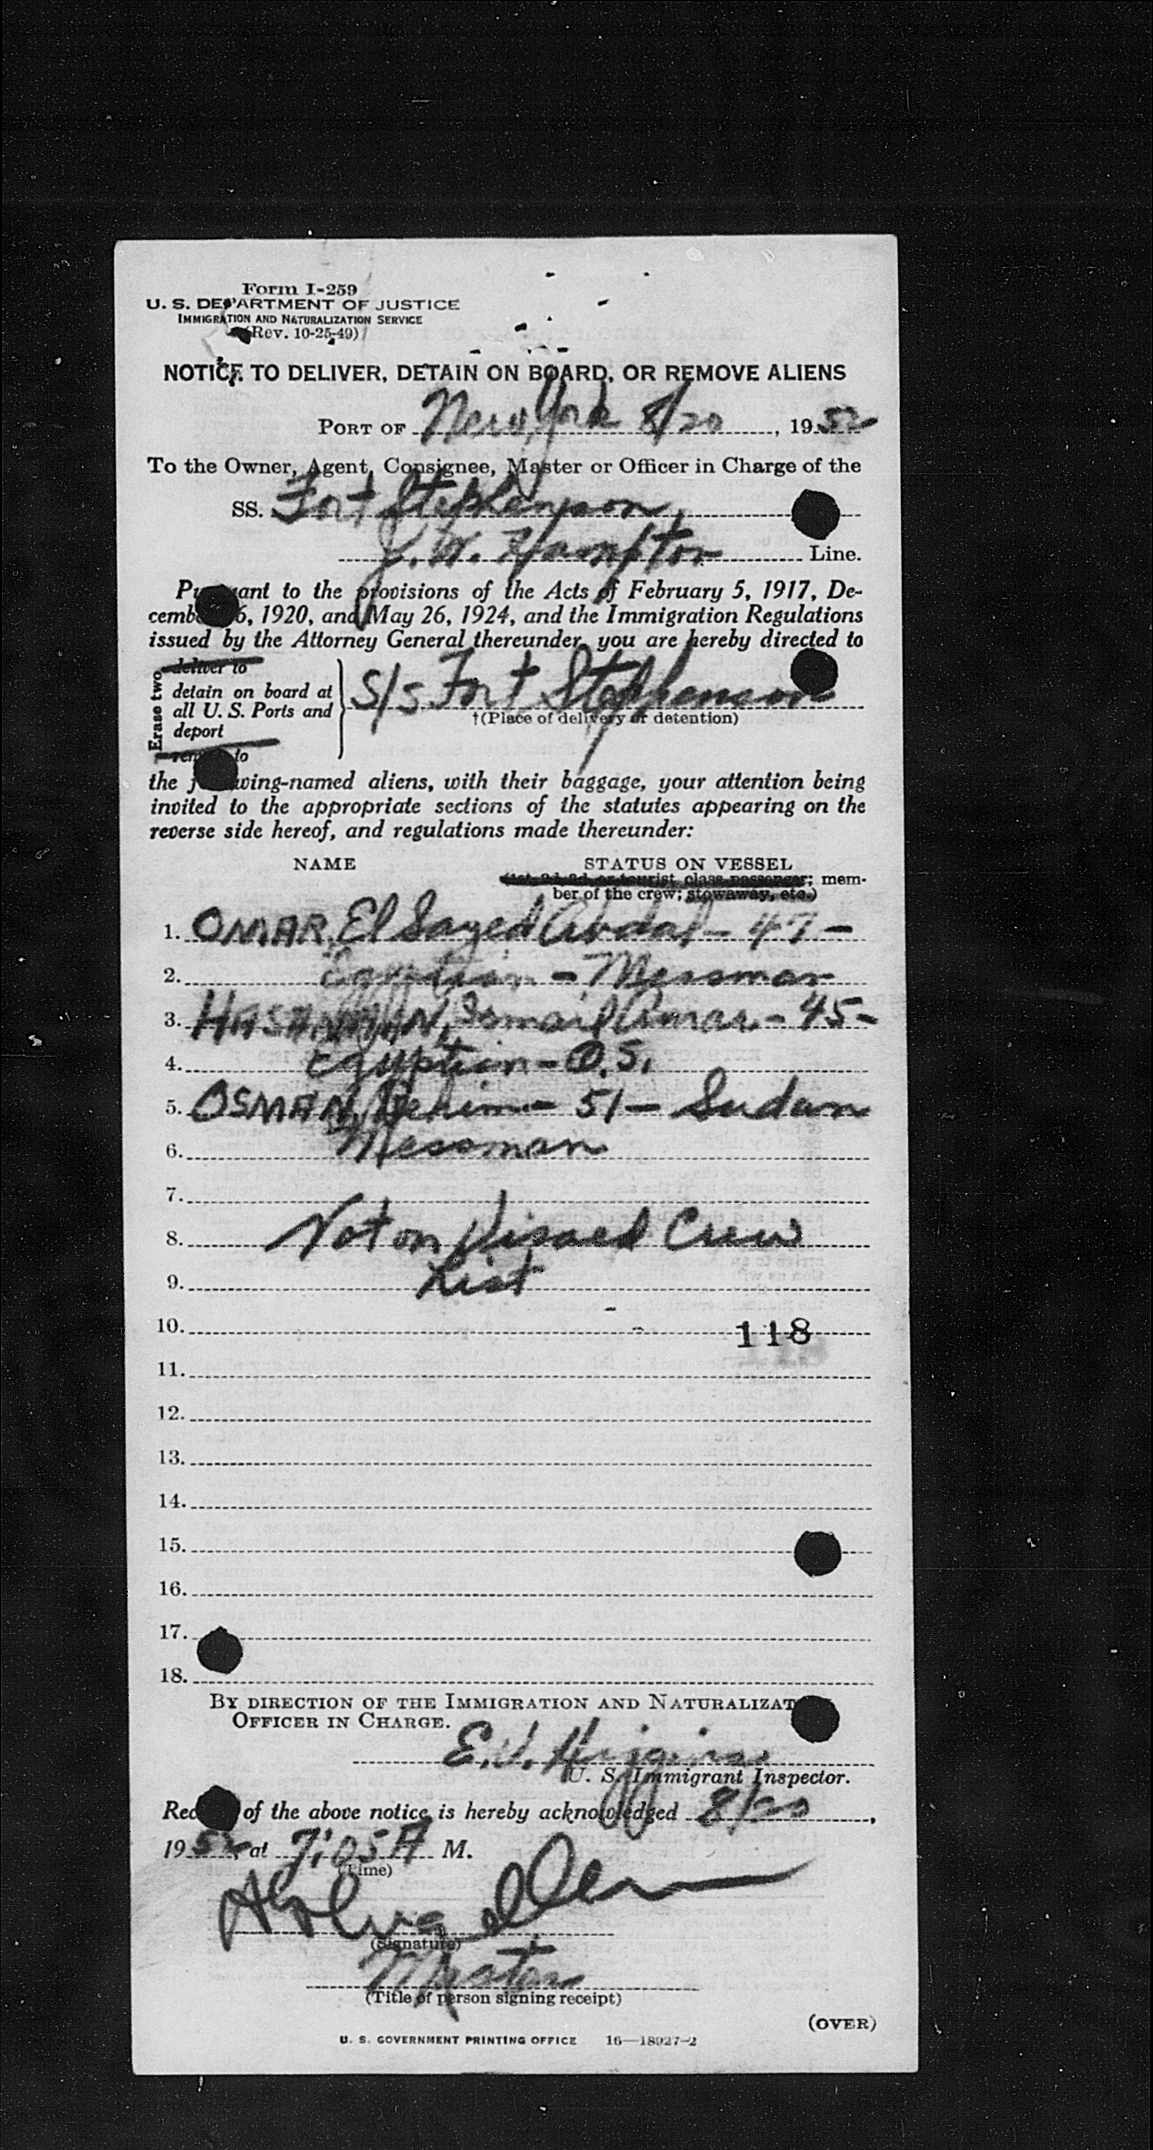 Form I-259
U. S. DEPARTMENT OF JUSTICE
IMMIGRATION AND NATURALIZATION SERVICE
(Rev. 10-25-49)
NOTICE TO DELIVER, DETAIN ON BOARD, OR REMOVE ALIENS
PORT OF New York 8/20, 1952
To the Owner, Agent, Consignee, Master or Officer in Charge of the
SS. Fort Stephenson
J. W. Hampton Line.
Pursuant to the provisions of the Acts of February 5, 1917, De-
cember 26, 1920, and May 26, 1924, and the Immigration Regulations
issued by the Attorney General thereunder, you are hereby directed to
Erase two
deliver to
detain on board at
all U. S. Ports and
deport
remove to
S/S Fort Stephenson
†(Place of delivery or detention)
the following-named aliens, with their baggage, your attention being
invited to the appropriate sections of the statutes appearing on the
reverse side hereof, and regulations made thereunder:
NAME STATUS ON VESSEL
(1st, 2d, 3d, or tourist class passenger; mem-
ber of the crew; stowaway, etc.)
1. OMAR, El Sayed Abdal - 47 -
2. Egyptian - Messman
3. Ismail - 45 -
4. Egyptian - O.S.
5. OSMAN, - 51 - Sudan
6. Messman
7.
8. Not on Visaed Crew
9. List
10. 118
11.
12.
13.
14.
15.
16.
17.
18.
BY DIRECTION OF THE IMMIGRATION AND NATURALIZATION
OFFICER IN CHARGE.
E. V. Higgins
U. S. Immigrant Inspector.
Receipt of the above notice is hereby acknowledged 8/20,
1952, at 7:05 A M.
(Time)
(Signature)
Master
(Title of person signing receipt)
(OVER)
U. S. GOVERNMENT PRINTING OFFICE 16—18927-2